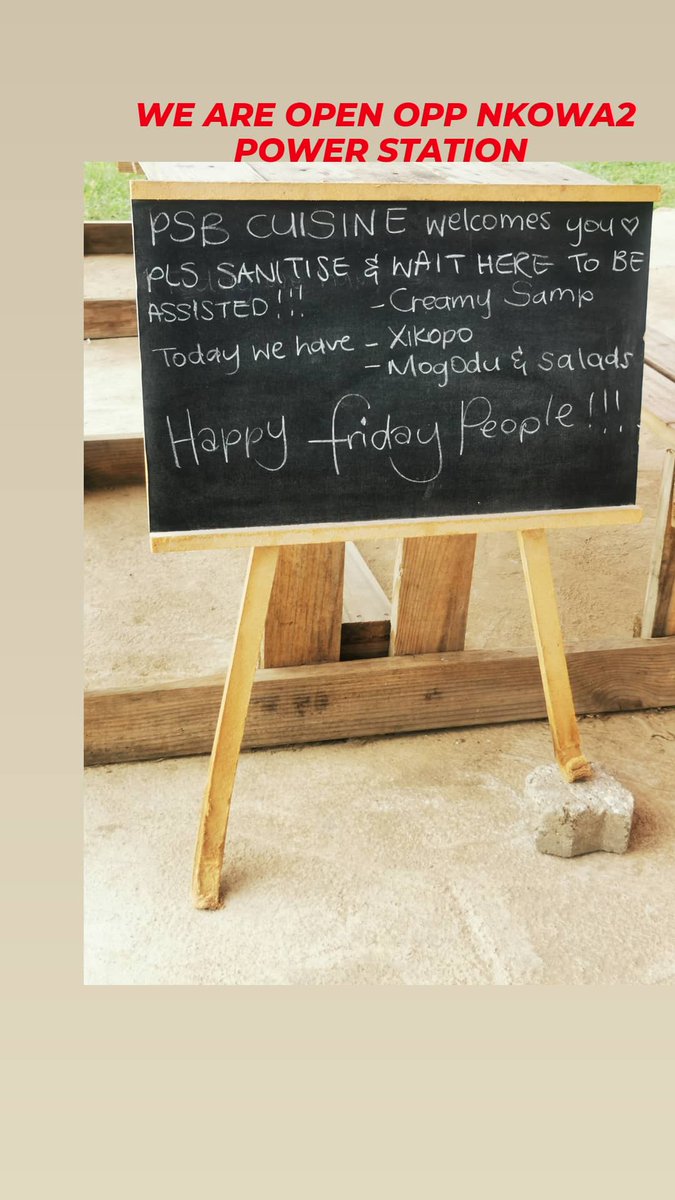 WE ARE OPEN OPP NKOWA2
POWER STATION
PSB CUISINE welcomes you♡
PLS SANITISE & WAIT HERE TO BE
ASSISTED!!! - Creamy Samp
Today we have - Xikopo
- Mogodu & salads
Happy friday People!!!